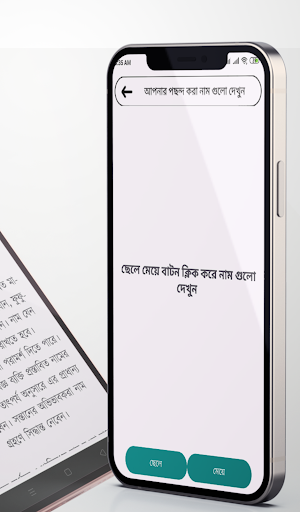 :35 AM
আপনার পছন্দ করা নাম গুলো দেখুন
ছেলে মেয়ে বাটন ক্লিক করে নাম গুলো
দেখুন
ছেলে
মেয়ে
মা-
নাম দেন
রাখতে হবে।
পরামর্শ দিতে পারে।
ব্যক্তি প্রস্তাবিত নামের
অনুসারে এর প্রাধান্য
সন্তানের অভিভাবকরা নাম
গ্রহণে সিদ্ধান্ত নেবেন।